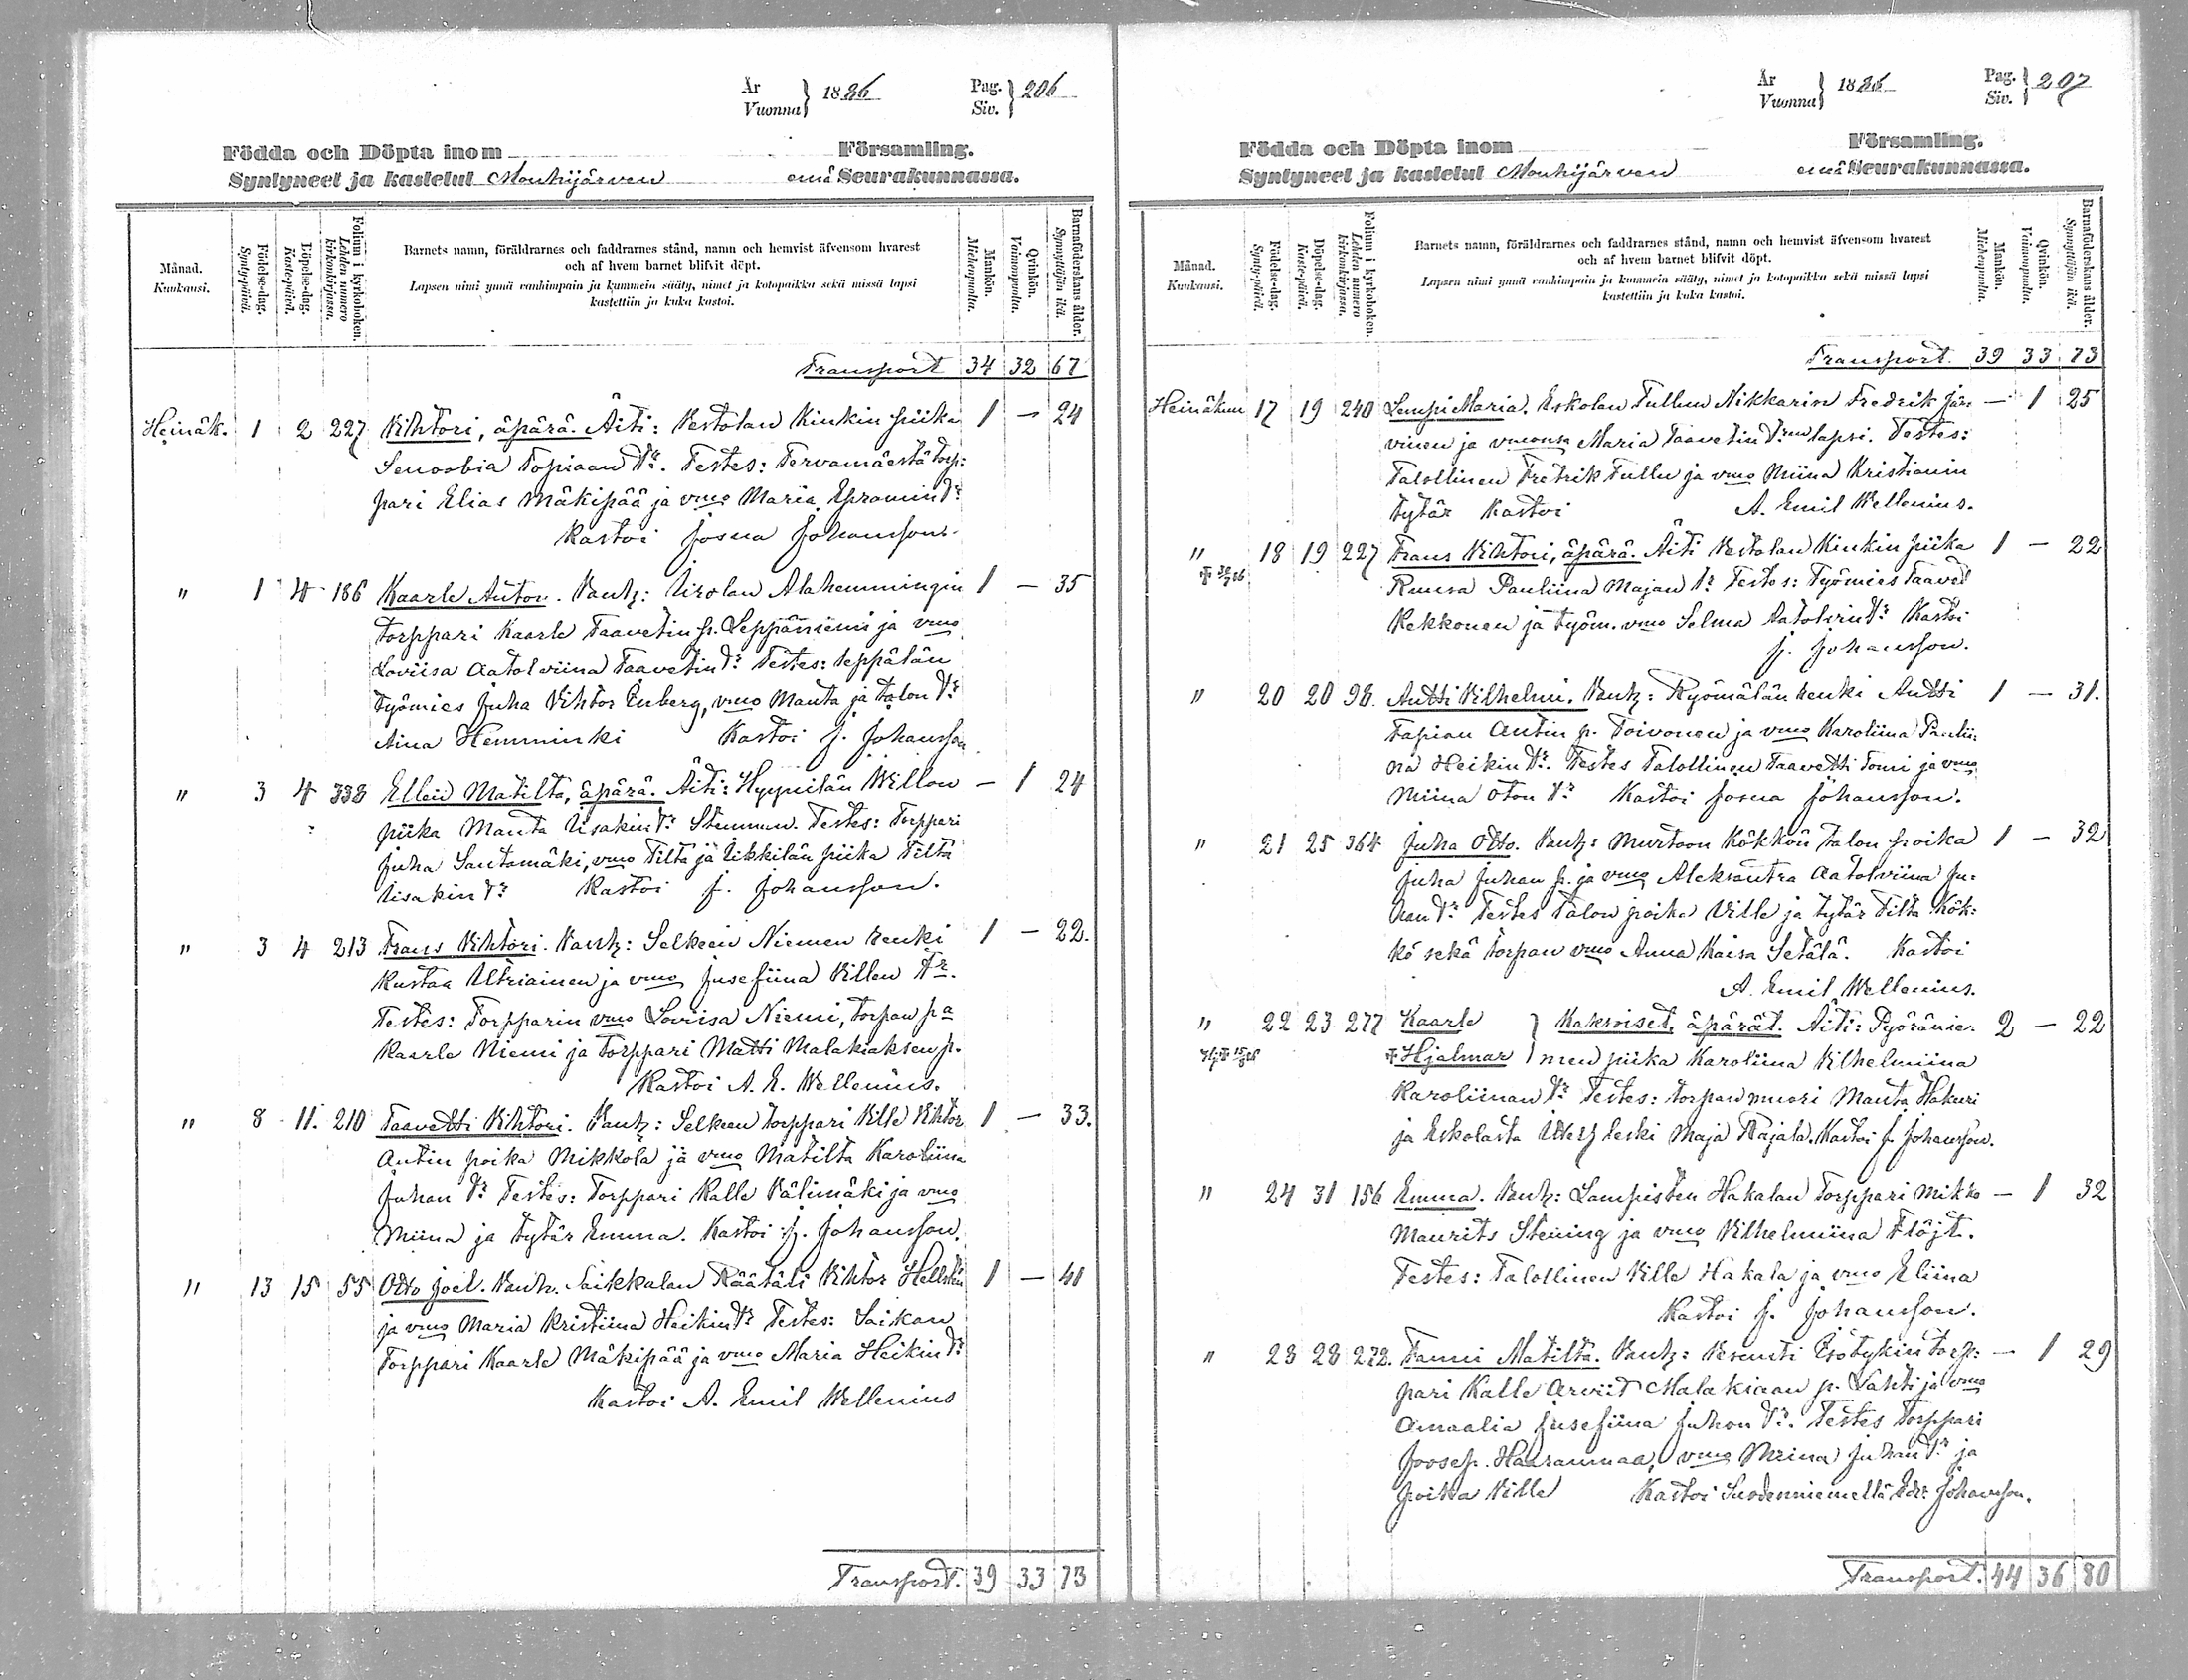 År
Vuonna } 1886 Pag.
Siv. } 206
Födda och Döpta inom Församling.
Syntyneet ja kastetut Mouhijärven emä Seurakunnassa.
Månad.
Kuukausi.
Födelse-dag.
Synty-päivä.
Döpelse-dag.
Kaste-päivä.
Folium i kyrkoboken.
Lehden numero kirkonkirjassa.
Barnets namn, föräldrarnes och faddrarnes stånd, namn och hemvist äfvensom hvarest
och af hvem barnet blifvit döpt.
Lapsen nimi ynnä vanhimpain ja kummein sääty, nimet ja kotopaikka sekä missä lapsi
kastettiin ja kuka kastoi.
Mankön.
Miehenpuolta.
Qvinkön.
Vaimonpuolta.
Barnaföderskans ålder.
Synnyttäjän ikä.
Transport 34 32 67
Heinäk. 1 2 227 Vihtori, äpärä. Äiti: Vestolan Kinkin piika 1 — 24
Senoobia Topiaan tr. Testes: Tervamäestä torp:
pari Elias Mäkipää ja vmo Maria Epramin tr
Kastoi Josua Johansson.
" 1 4 186 Kaarle Anton. Vanh: Urolan Alahemmingin 1 — 35
torppari Kaarle Taavetin p. Leppäniemi ja vmo
Loviisa Aatolviina Taavetin tr Testes: Seppälän
työmies Juha Vihtor Enberg, vmo Manta ja talon tr
Aina Hemminki Kastoi J. Johansson
" 3 4 338 Ellen Matilta, äpärä. Äiti: Hyynilän Willon — 1 24
piika Manta Iisakin tr Stenman. Testes: Torppari
Juha Santamäki, vmo Tilta ja Uikkilän piika Tilta
Iisakin tr Kastoi J. Johansson.
" 3 4 213 Frans Vihtori. Vanh: Selkeen Niemen renki 1 — 22.
Kustaa Ultriainen ja vmo Jusefiina Villen tr.
Testes: Torpparin vmo Loviisa Niemi, torpan pa
Kaarle Niemi ja torppari Matti Malakiaksen p.
Kastoi A. E. Wellenius.
" 8 11. 210 Taavetti Vihtori. Vanh: Selkeen torppari Ville Vihtor 1 — 33.
Antin poika Mikkola ja vmo Matilta Karoliina
Juhan tr Testes: Torppari Kalle Välimäki ja vmo
Miina ja tytär Emma. Kastoi J. Johansson.
" 13 15 55 Otto Joel. Vanh. Saikkalan Räätäli Vihtor Hellstén 1 — 41
ja vmo Maria Kristiina Heikin tr Testes: Saikan
Torppari Kaarle Mäkipää ja vmo Maria Heikin tr
Kastoi A. Emil Wellenius
Transport. 39 33 73
År
Vuonna } 1886 Pag.
Siv. } 207
Födda och Döpta inom Församling.
Syntyneet ja kastetut Mouhijärven emä Seurakunnassa.
Månad.
Kuukausi.
Födelse-dag.
Synty-päivä.
Döpelse-dag.
Kaste-päivä.
Folium i kyrkoboken.
Lehden numero kirkonkirjassa.
Barnets namn, föräldrarnes och faddrarnes stånd, namn och hemvist äfvensom hvarest
och af hvem barnet blifvit döpt.
Lapsen nimi ynnä vanhimpain ja kummein sääty, nimet ja kotopaikka sekä missä lapsi
kastettiin ja kuka kastoi.
Mankön.
Miehenpuolta.
Qvinkön.
Vaimonpuolta.
Barnaföderskans ålder.
Synnyttäjän ikä.
Transport. 39 33 73
Heinäkuu 17 19 240 Lempi Maria. Eskolan Tullun Nikkarin Fredrik Jär: — 1 25
vinen ja vmonsa Maria Taavetin tren lapsi. Testes:
Talollinen Fretrik Tullu ja vmo Miina Kristianin
tytär Kastoi A. Emil Wellenius.
" 18 19 227 Frans Vihtori, äpärä. Äiti Vestolan Kinkin piika 1 — 22
Ruusa Pauliina Majan tr Testes: Työmies Taavet
Kekkonen ja työm. vmo Selma Aatolvin tr Kastoi
J. Johansson.
" 20 20 98. Antti Vilhelmi. Vanh: Ryömälän renki Antti 1 — 31.
Tapian Antin p. Toivonen ja vmo Karoliina Paulii:
na Heikin tr. Testes Talollinen Taavetti Tomi ja vmo
Miina Oton tr Kastoi Josua Johansson.
" 21 25 364 Juha Otto. Vanh: Murtoon Kökkön talon poika 1 — 32
Juha Juhan p. ja vmo Aleksantra Aatolviina Ju:
han tr Testes Talon poika Ville ja tytär Tilta Kök:
kö sekä torpan vmo Anna Kaisa Setälä. Kastoi
A. Emil Wellenius.
" 22 23 277 Kaarle } Kaksoiset, äpärät. Äiti: Pyöränie. 2 — 22
Hjalmar } men piika Karoliina Vilhelmiina
Karoliinan tr Testes: torpan muori Manta Hakuri
ja Eskolasta leski Maja Rajala. Kastoi J. Johansson.
" 24 31 156 Emma. Vanh: Lampisten Hakalan Torppari Mikko — 1 32
Maurits Stening ja vmo Vilhelmiina Flöjt.
Testes: Talollinen Ville Hakala ja vmo Eliina
Kastoi J. Johansson.
" 28 28 272. Fanni Matilta. Vanh: Vesunti Isotykin torp: — 1 29
pari Kalle Arviit Malakiaan p. Lahti ja vmo
Amaalia Jusefiina Juhon tr. Testes torppari
Joosep. Haaranmaa, vmo Miina Juhan tr ja
poika Ville Kastoi Suodenniemellä Edv. Johansson.
Transport. 44 36 80